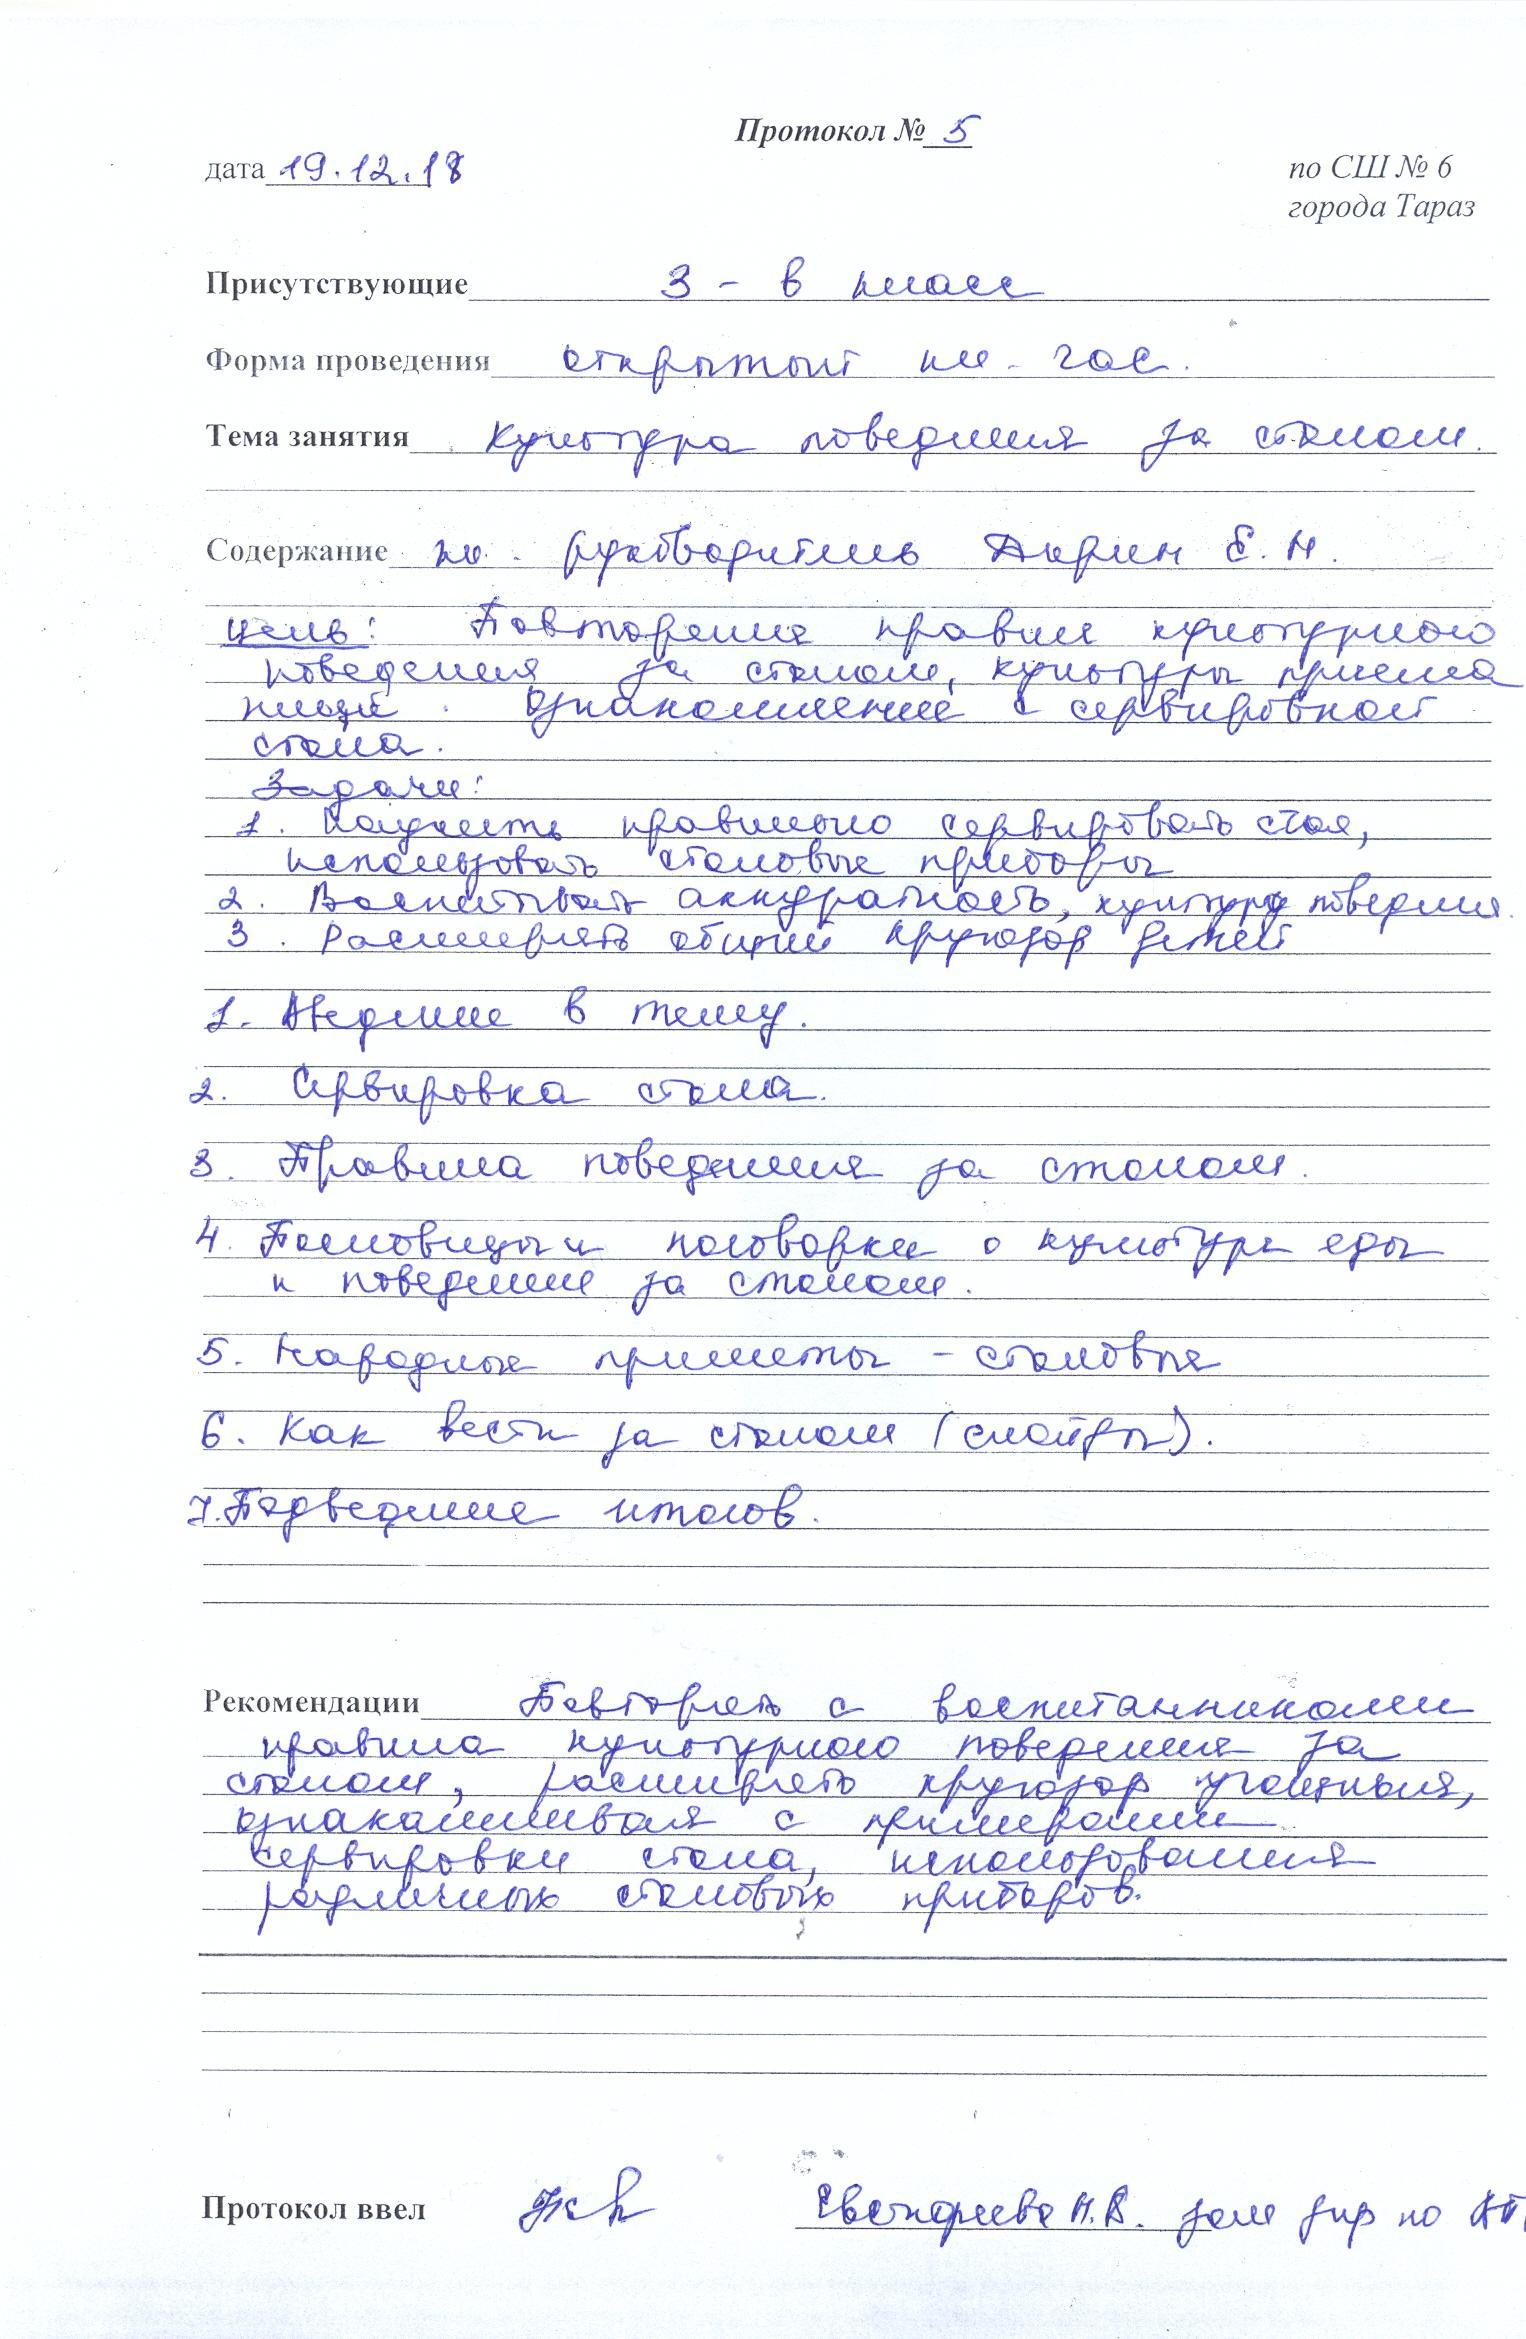 Протокол № 5
дата 19.12.18
по СШ № 6
города Тараз
Присутствующие 3 - в класс
Форма проведения открытый кл. час.
Тема занятия Культура поведения за столом.
Содержание кл. руководитель Е. Н.
Цель: Повторение правил культурного
поведения за столом, культуры приема
пищи. Ознакомление с сервировкой
стола.
Задачи:
1. Научить правильно сервировать стол,
использовать столовые приборы
2. Воспитывать аккуратность, культуру поведения.
3. Расширять общий кругозор детей
1. Введение в тему.
2. Сервировка стола.
3. Правила поведения за столом.
4. Пословицы и поговорки о культуре еды
и поведение за столом.
5. Народные приметы - столовые
6. Как вести за столом (слайды).
7. Подведение итогов.
Рекомендации Повторять с воспитанниками
правила культурного поведения за
столом, расширять кругозор учащихся,
ознакамливая с примерами
сервировки стола, использования
различных столовых приборов.
Протокол ввел Н.В. зам дир по